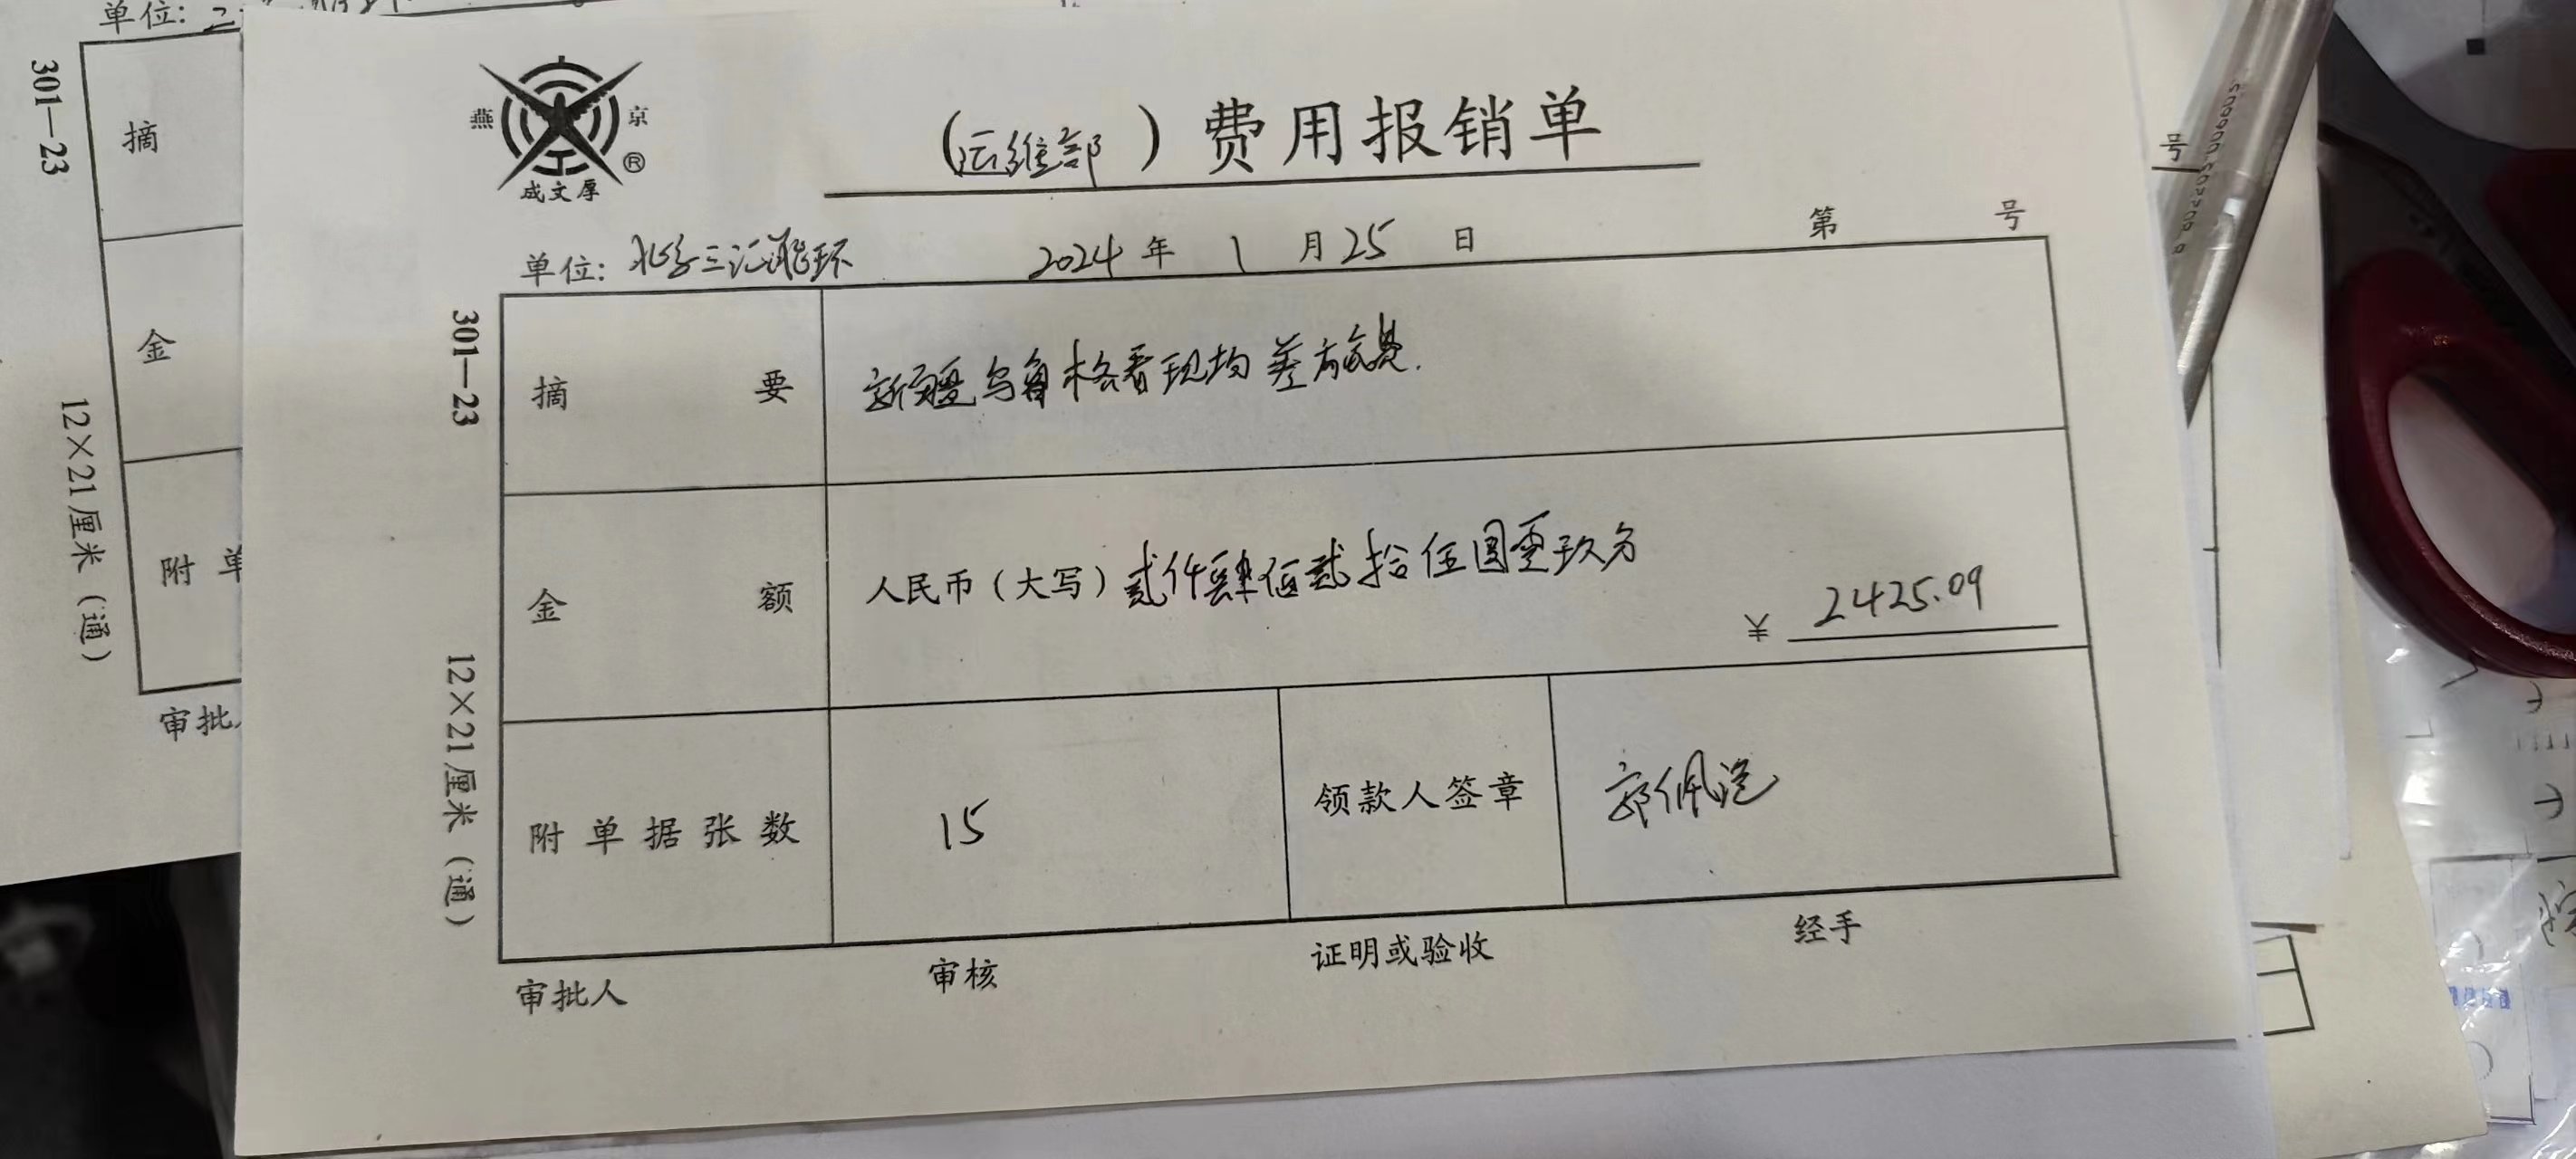 单位:
301—23
摘
金
附 单
12×21厘米（通）
审批人
燕 京
®
成文厚
（运维部）费用报销单
单位: 北京三汇能环 2024 年 1 月 25 日 第 号
301—23
12×21厘米（通）
摘 要 新疆乌鲁木格看现均差旅费.
金 额 人民币（大写）贰仟肆佰贰拾伍圆零玖分
¥ 2425.09
附单据张数 15 领款人签章 郭佩
审批人 审核 证明或验收 经手
号